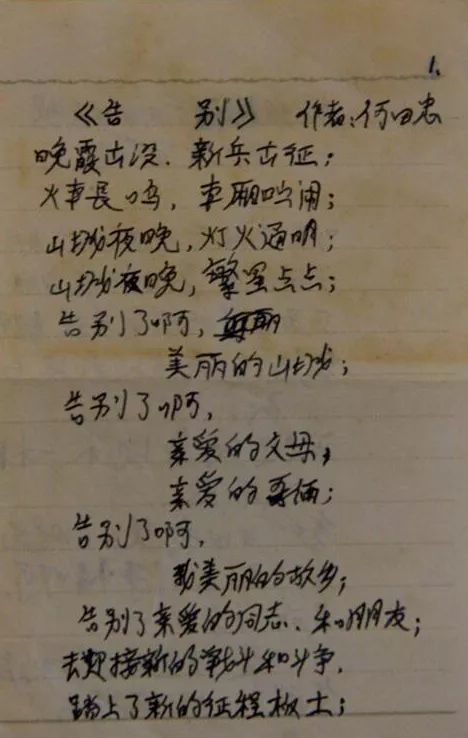 1.
《告 别》 作者:何忠
晚霞出没、新兵出征;
火車長鸣,車厢吵闹;
山城夜晚,灯火通明;
山城夜晚,繁星点点;
告别了啊,
美丽的山城;
告别了啊,
亲爱的父母,
亲爱的哥俩;
告别了啊,
我美丽的故乡;
告别了亲爱的同志、和朋友;
去迎接新的战斗和斗争,
踏上了新的征程板土;